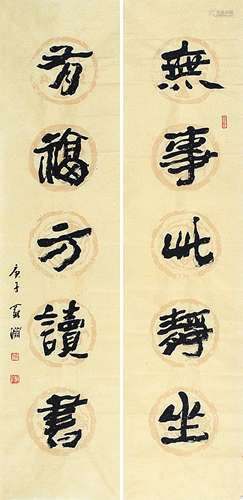 無事此靜坐
有福方讀書
庚子